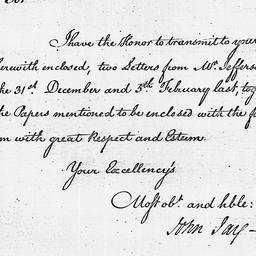 I have the Honor to transmit to your
herewith enclosed, two Letters from Mr. Jefferso
he 31st. December and 3rd. February last, tog
the Papers mentioned to be enclosed with the f
m with great Respect and Esteem.
Your Excellency's
Most obt. and hble:
John Jay—